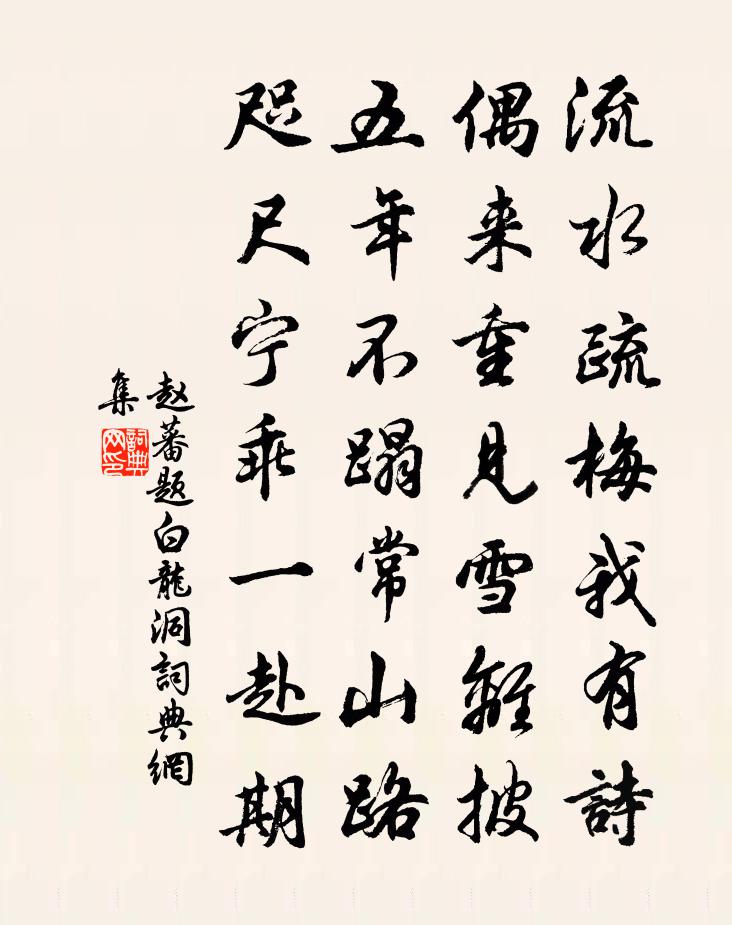 流水疏梅我有詩
偶来重見雪離披
五年不蹋常山路
咫尺宁乖一赴期
赵蕃题白龍洞詞典網
集
詞典
网印